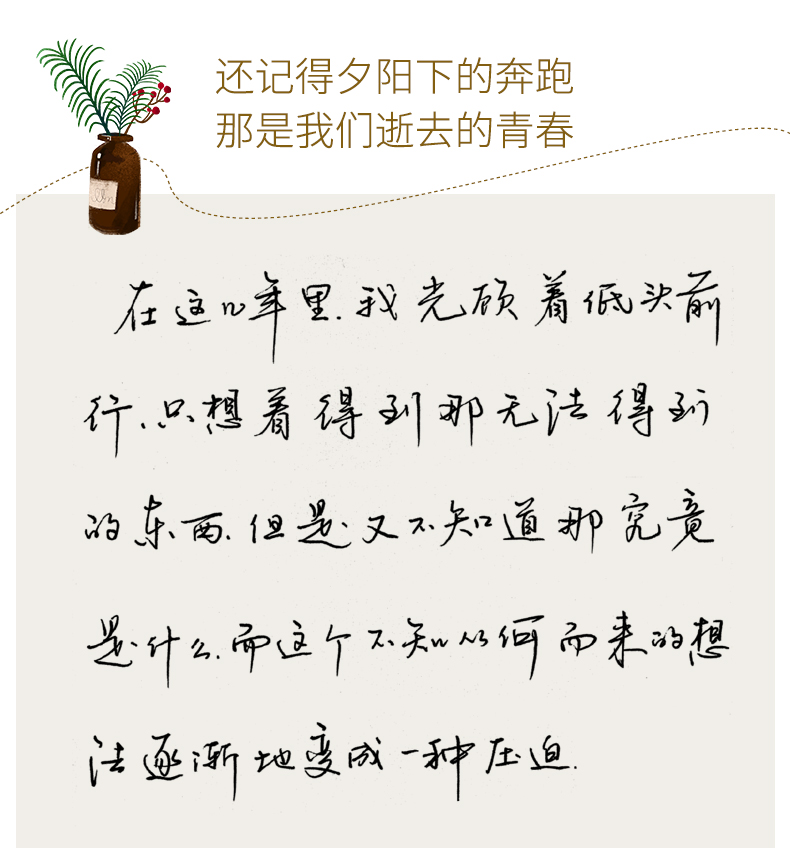 还记得夕阳下的奔跑
那是我们逝去的青春
在这几年里.我光顾着低头前
行、只想着得到那无法得到
的东西.但是又不知道那究竟
是什么.而这个不知从何而来的想
法逐渐地变成一种压迫.